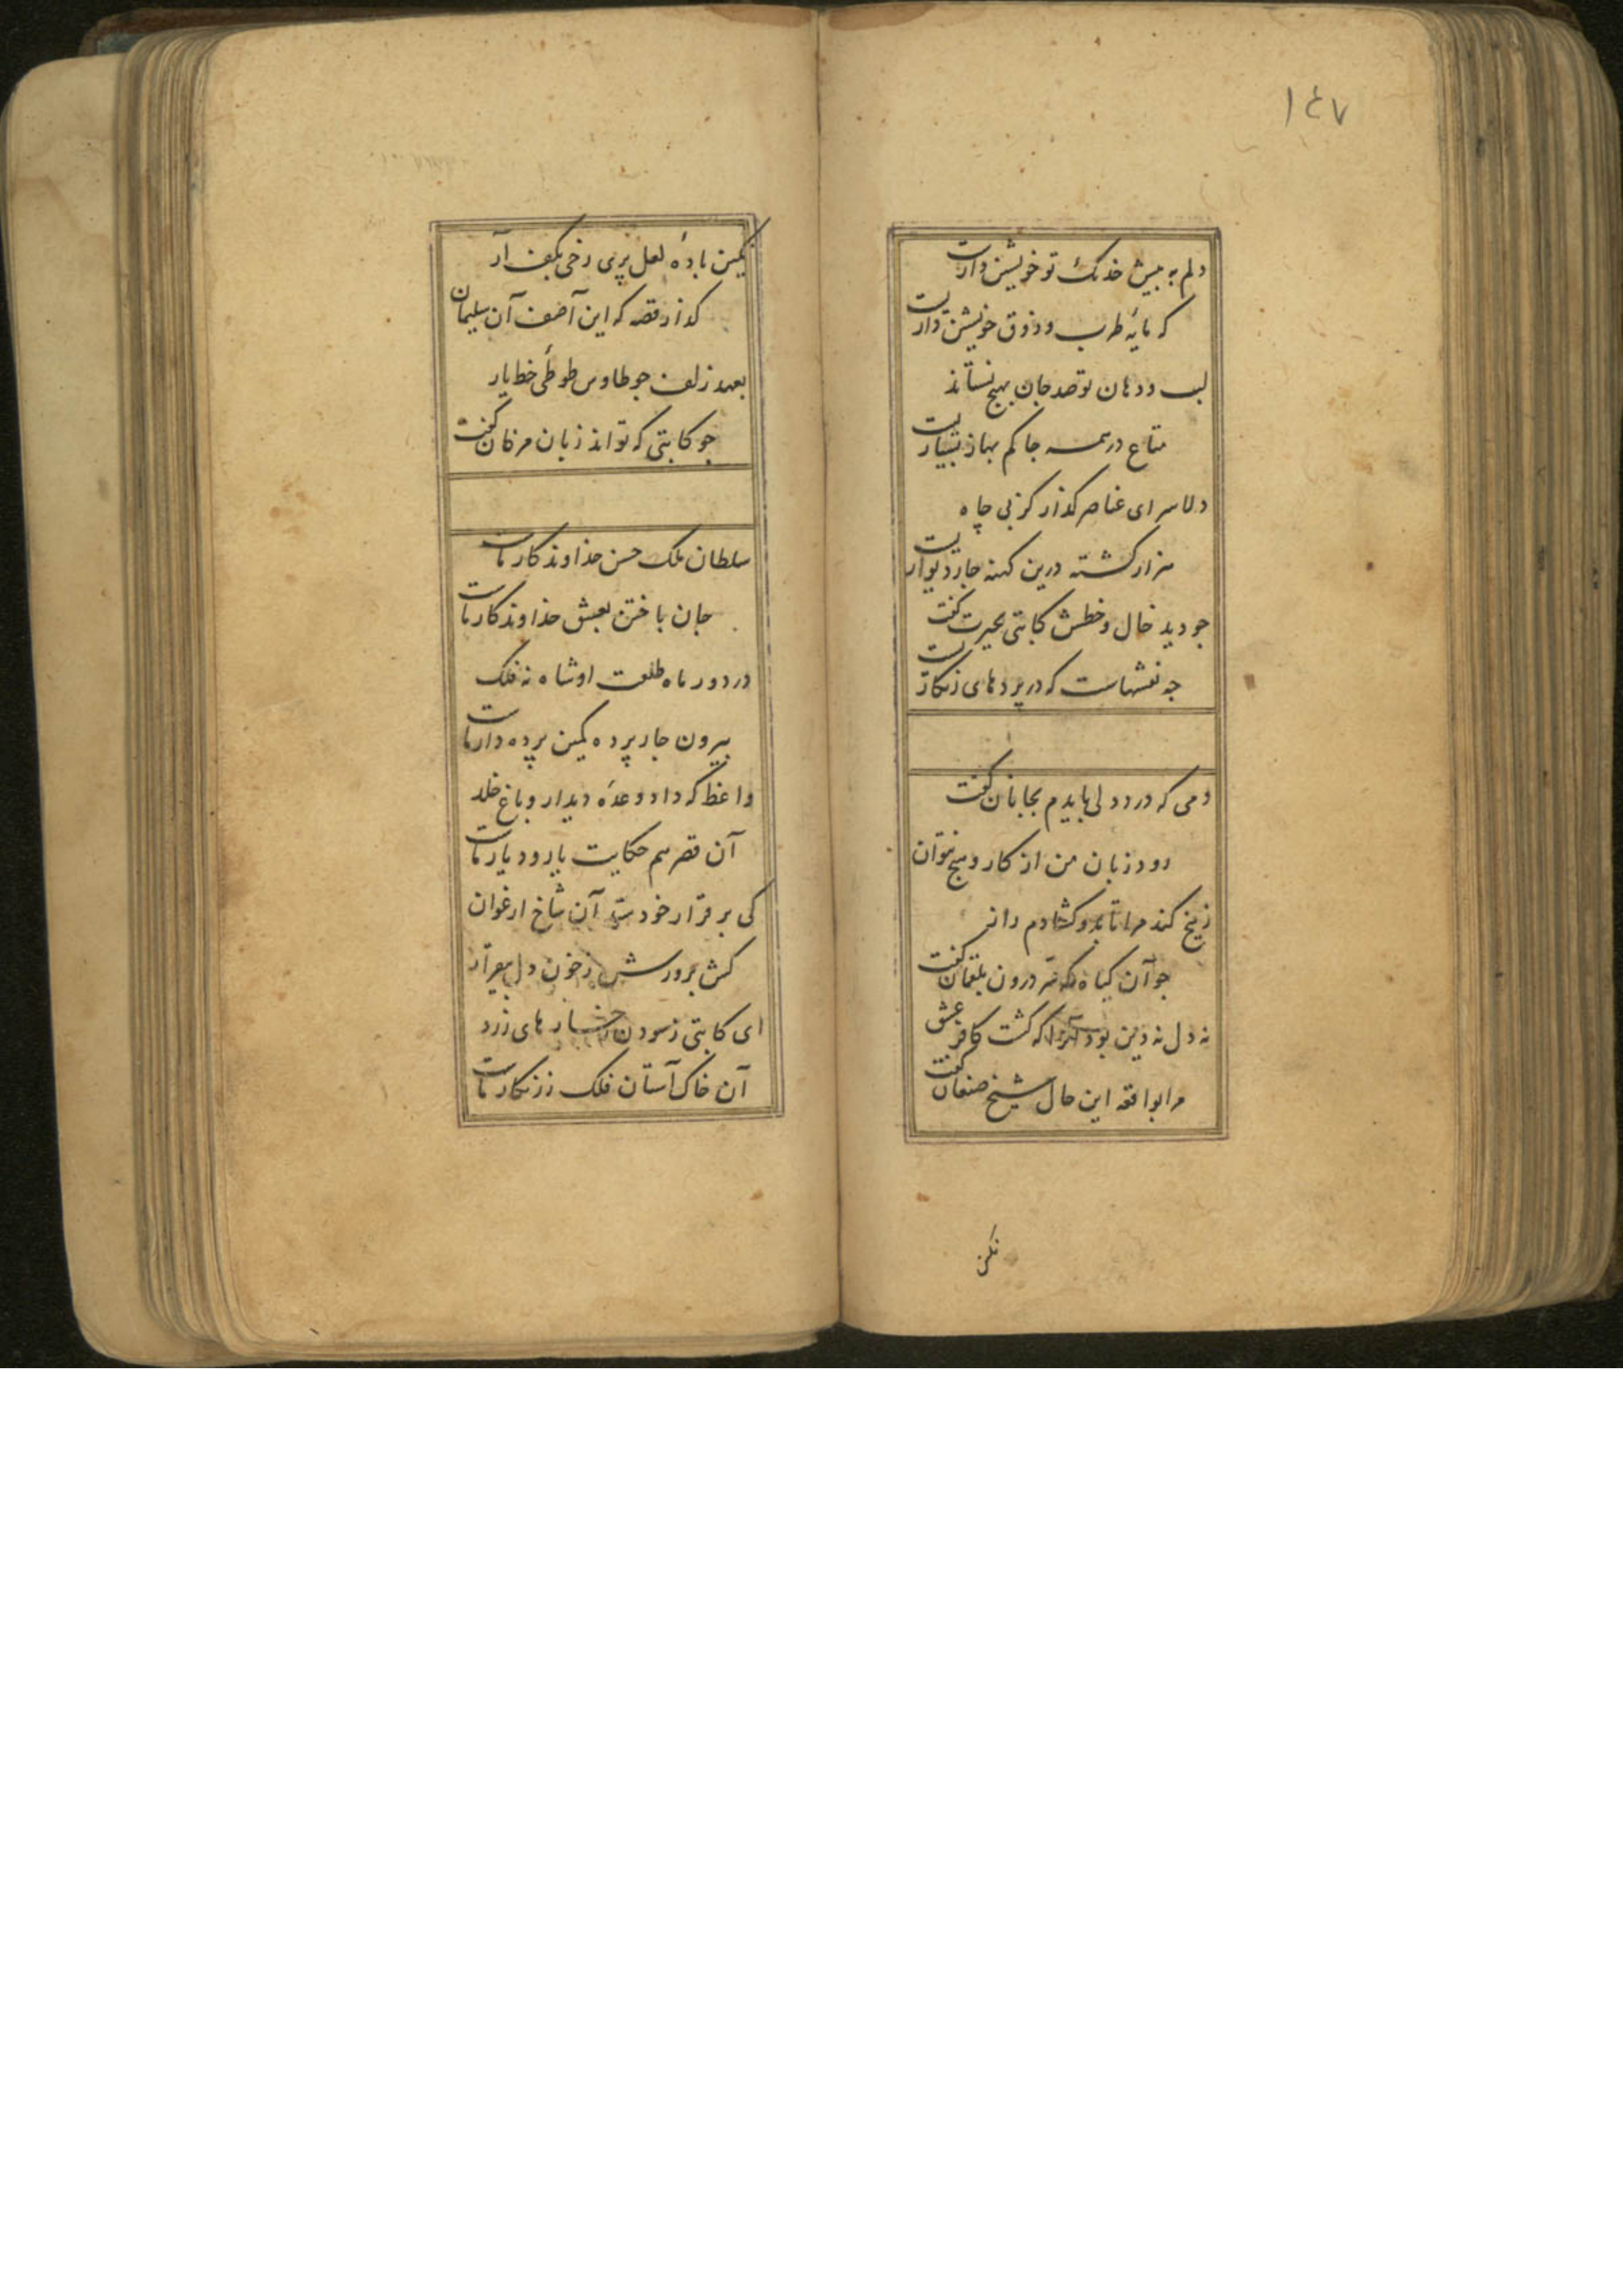 ١٤٧
دلم به پیش خدنک تو خویشتن داریست
که مایهٔ طرب و ذوق خویشتن داریست
لب و دهان تو صد جان بهیچ نستاند
متاع در همه جا کم بها ز بسیاریست
دلا سرای عناصر کذار کز بی جاه
هزار کشته درین کهنه جار دیواریست
جو دید خال و خطش کاتبی بحیرت کفت
جه نقشهاست که در پردهای زنکاریست
دمی که درد دلی بایدم بجانان کفت
رود زبان من از کار و هیچ نتوان کفت
زنخ کند مرا تا بدو کشادم راز
جو آن کیاه که درون بلقمان کفت
نه دل نه دین بود آنرا که کشت کافر عشق
مرا بواقعه این حال شیخ صنعان کفت
نکین
نکین بادهٔ لعل پری رخی بکف آر
کذار قصه که این آصف آن سلیمان کفت
بعهد زلف جو طاوس طوطی خط یار
جو کاتبی که تواند زبان مرغان کفت
سلطان ملک حسن خداوندکار ماست
جان باختن بعشق خداوند کار ماست
در دور ماه طلعت او شاه نه فلک
بیرون جار پرده کمین پرده دار ماست
واعظ که داد وعدهٔ دیدار و باغ خلد
آن قصه هم حکایت یار و دیار ماست
کی بر قرار خود آن شاخ ارغوان
کش پرورش ز خون دل بیقرار
ای کاتبی ز سودن رخسارهای زرد
آن خاک آستان فلک زرنکار ماست